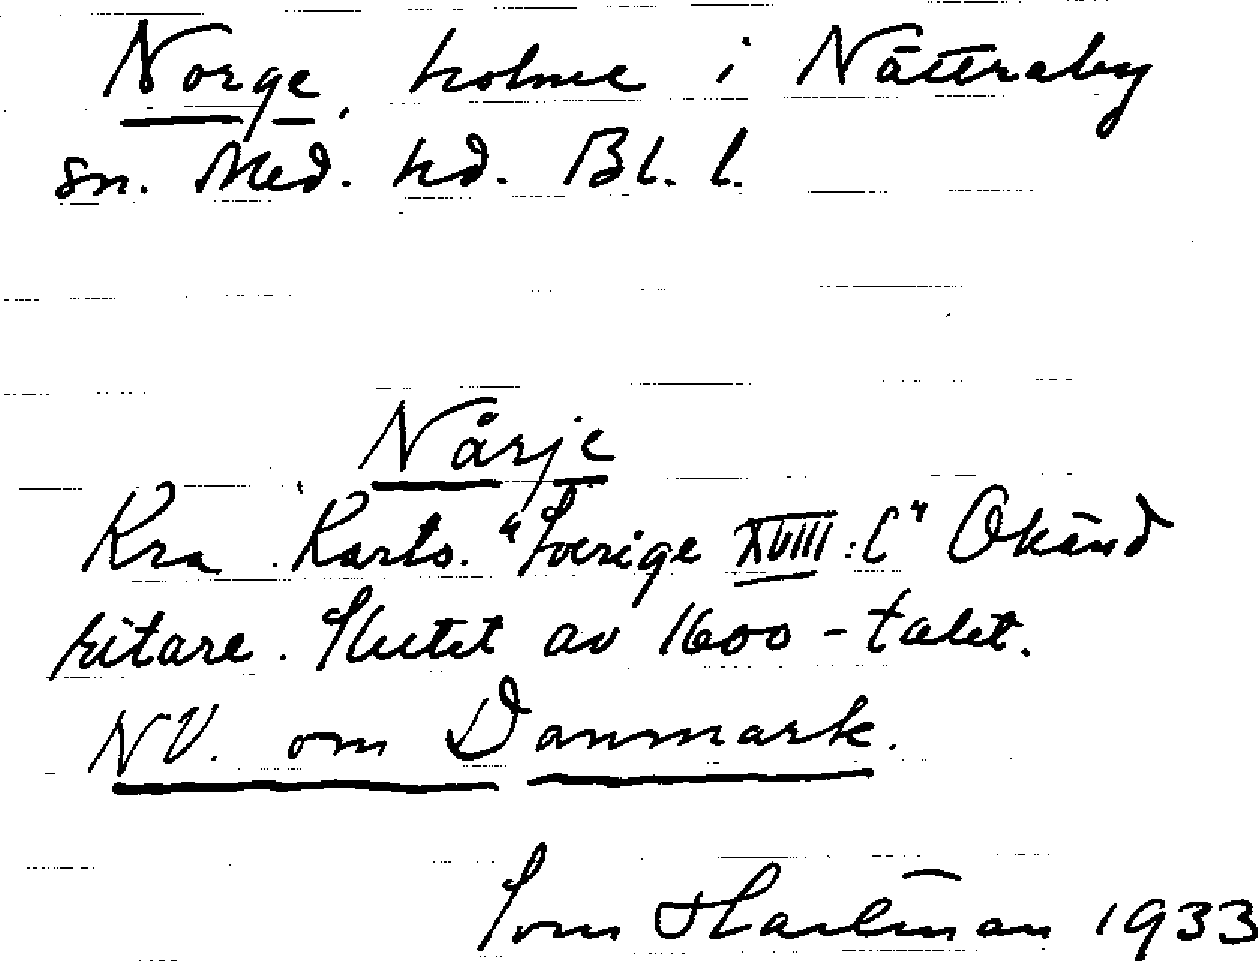 Norge, holme i Nättraby
sn. Med. hd. Bl. l.
Nårje
Kra. Karto. "Sverige XVIII:C" Okänd
ritare. Slutet av 1600-talet.
NV. om Danmark.
Tom Hartman 1933